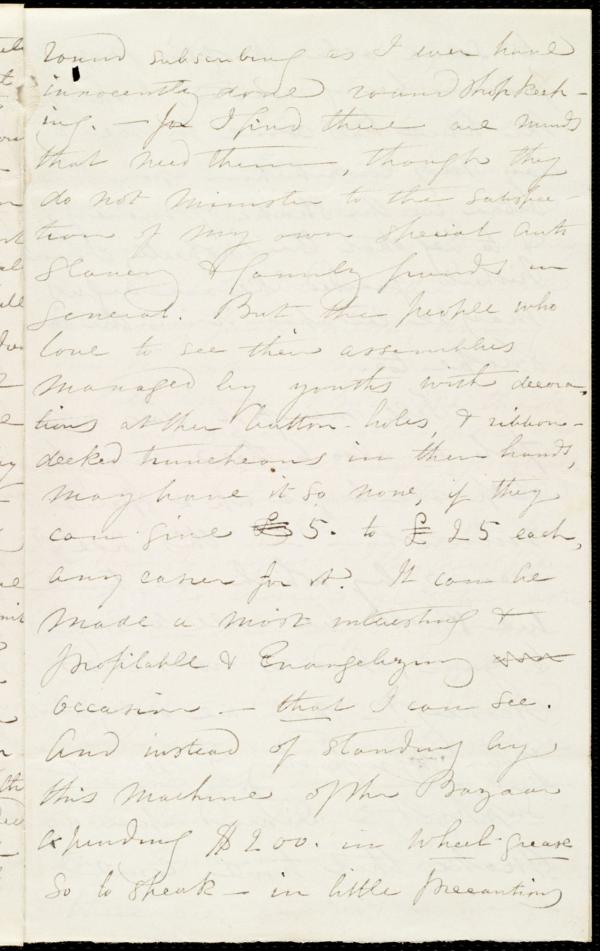 round subscribing as I ever have
innocently done round shopkeep-
ing. — For I find there are minds
that need them, though they
do not minister to the satisfac-
tion of my own special anti
slavery & family friends in
general. But the people who
love to see their assemblies
managed by youths with decora-
tions at their button-holes, & ribbon-
decked truncheons in their hands,
may have it so now, if they
can give £5. to £25 each,
any easier for it. It can be
made a most interesting &
profitable & Evangelizing
occasion — that I can see.
And instead of standing by
this machine of the Bazaar
expending $200. in wheel-grease
so to speak — in little precautions